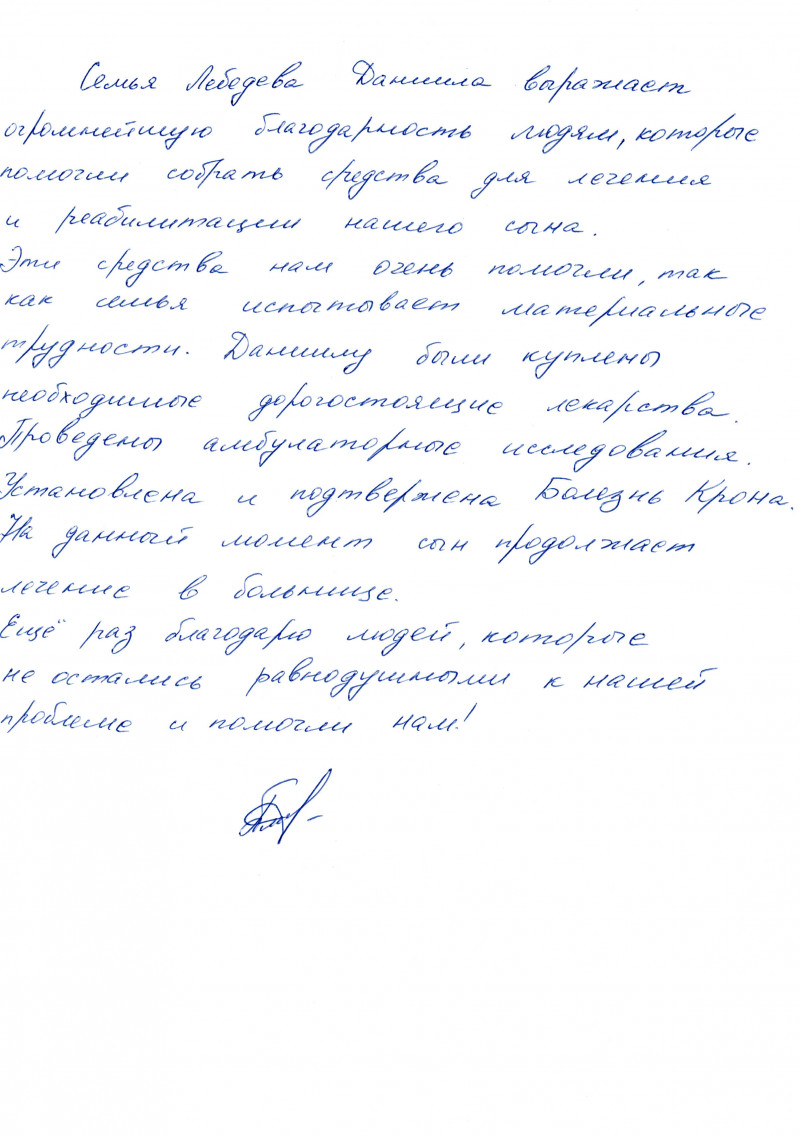 Семья Лебедева Даниила выражает
огромнейшую благодарность людям, которые
помогли собрать средства для лечения
и реабилитации нашего сына.
Эти средства нам очень помогли, так
как семья испытывает материальные
трудности. Даниилу были куплены
необходимые дорогостоящие лекарства.
Проведены амбулаторные исследования.
Установлена и подтвержена Болезнь Крона.
На данный момент сын продолжает
лечение в больнице.
Ещё раз благодарю людей, которые
не остались равнодушными к нашей
проблеме и помогли нам!